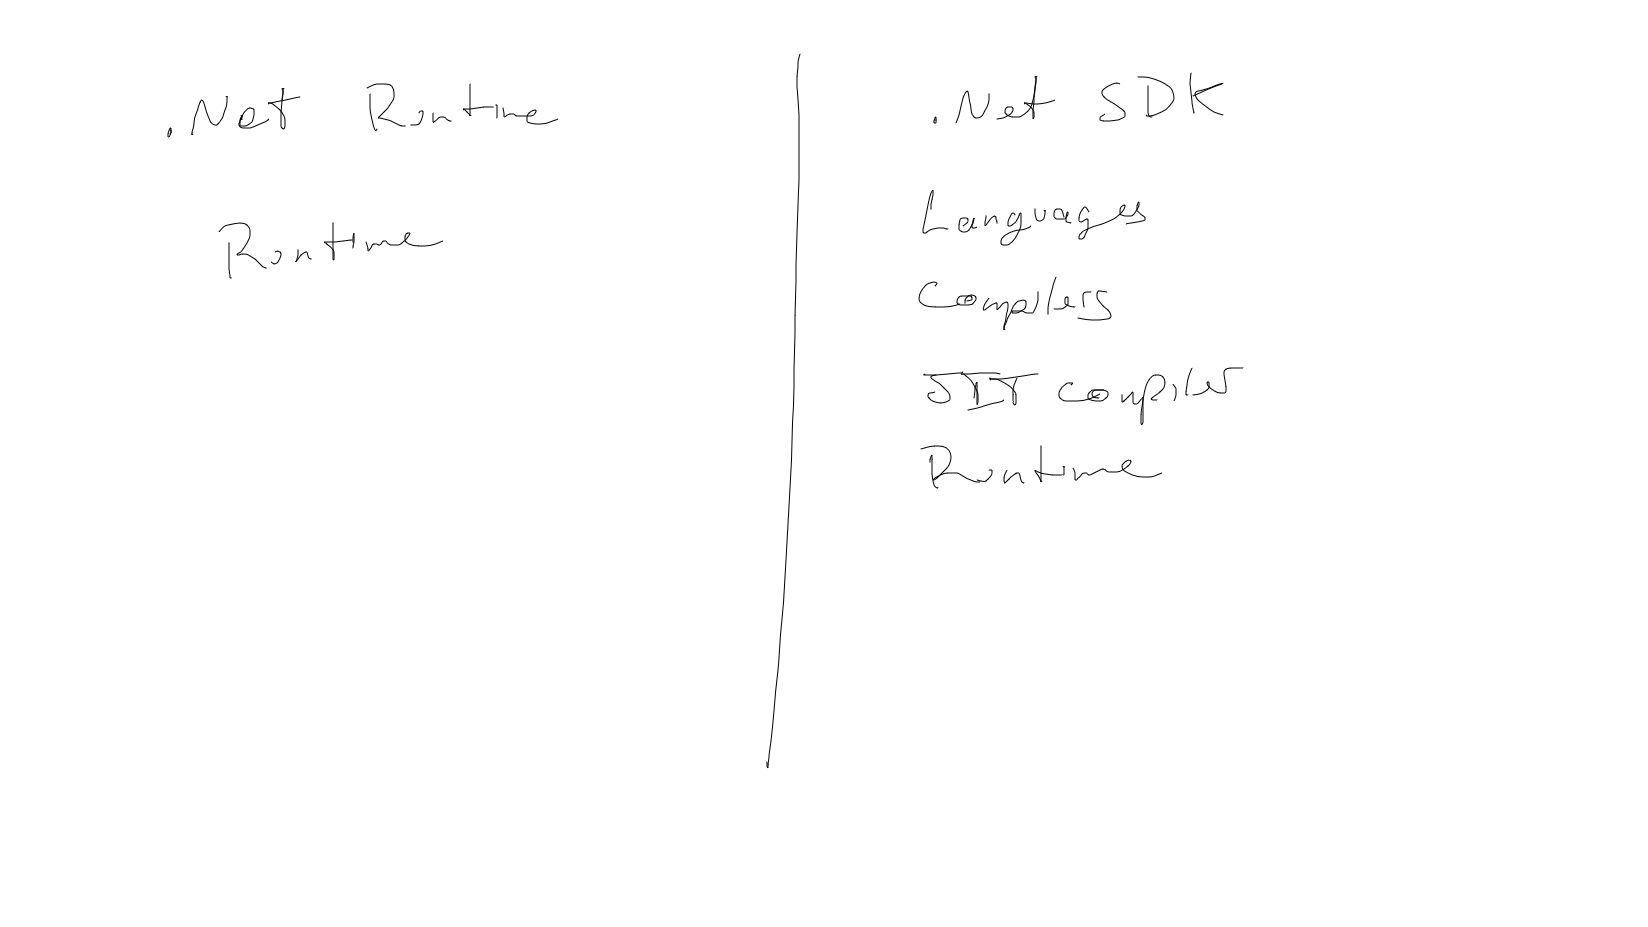 .Net Runtime
Runtime
.Net SDK
Languages
Compilers
JIT compiler
Runtime